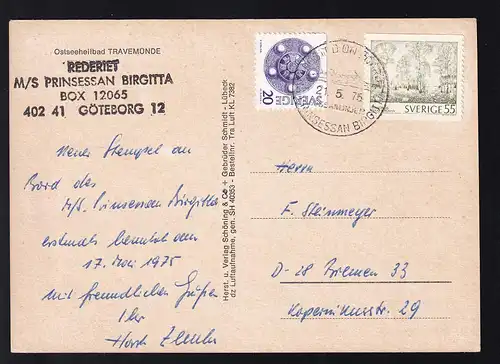 Ostseeheilbad TRAVEMÜNDE
REDERIET
M/S PRINSESSAN BIRGITTA
BOX 12065
402 41 GÖTEBORG 12
Neuer Stempel an
Bord des
M/S. Prinsessan Birgitta
erstmals benutzt am
17. Mai 1975
Mit freundlichen Grüßen
Ihr
Horst
Herst. u. Verlag Schöning & Co + Gebrüder Schmidt - Lübeck
dz Luftaufnahme, gen. SH 40353 - Bestellnr. Tra Luft KL 7392
SVERIGE
20
21. 5. 75
PRINSESSAN BIRGITTA
SVERIGE 55
Herrn
F. Steinmeyer
D-28 Bremen 33
Kopernikusstr. 29